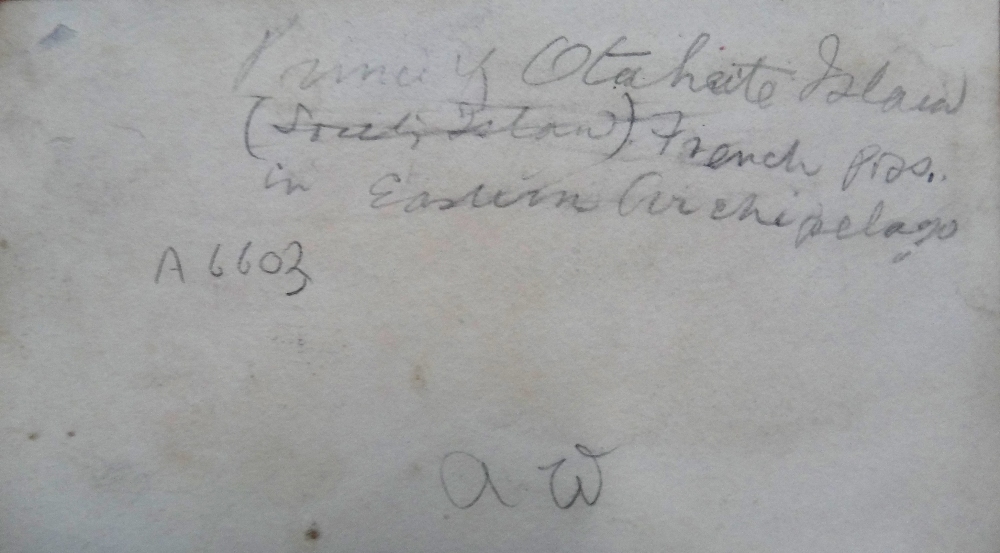 Prince of Otaheite Island
(South Island) French pos..
in Eastern Archipelago
A 6603
a w